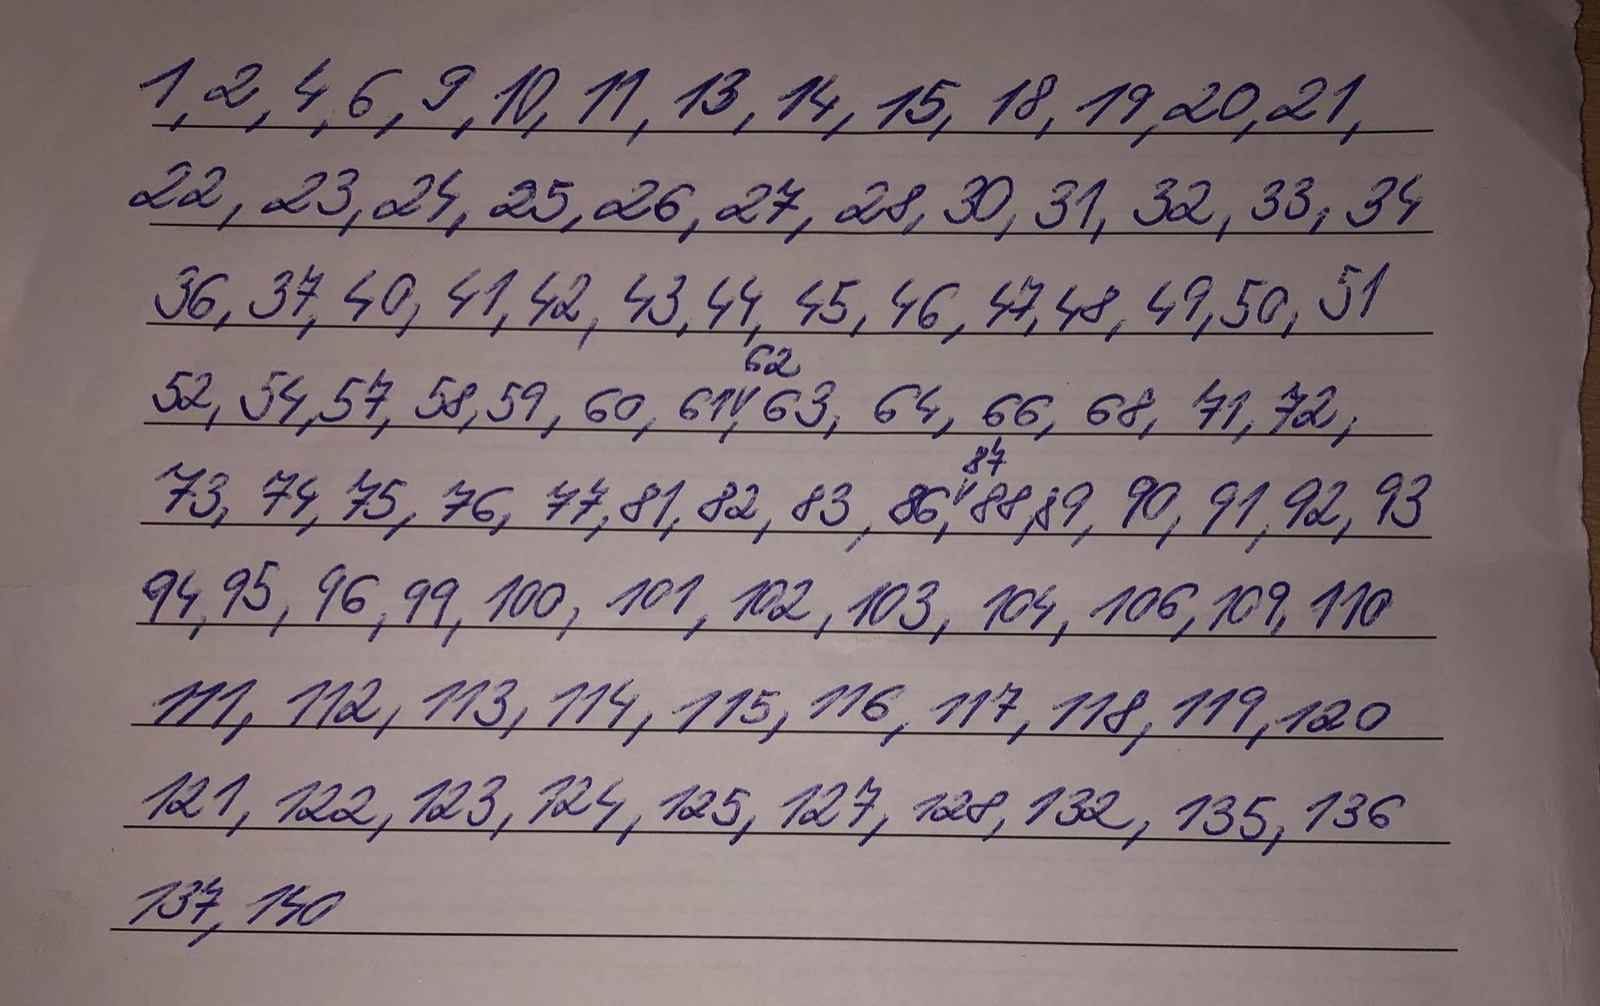 1, 2, 4, 6, 9, 10, 11, 13, 14, 15, 18, 19, 20, 21,
22, 23, 24, 25, 26, 27, 28, 30, 31, 32, 33, 34
36, 37, 40, 41, 42, 43, 44, 45, 46, 47, 48, 49, 50, 51
62
52, 54, 57, 58, 59, 60, 61, 63, 64, 66, 68, 71, 72,
87
73, 74, 75, 76, 77, 81, 82, 83, 86, 88, 89, 90, 91, 92, 93
94, 95, 96, 99, 100, 101, 102, 103, 104, 106, 109, 110
111, 112, 113, 114, 115, 116, 117, 118, 119, 120
121, 122, 123, 124, 125, 127, 128, 132, 135, 136
137, 140